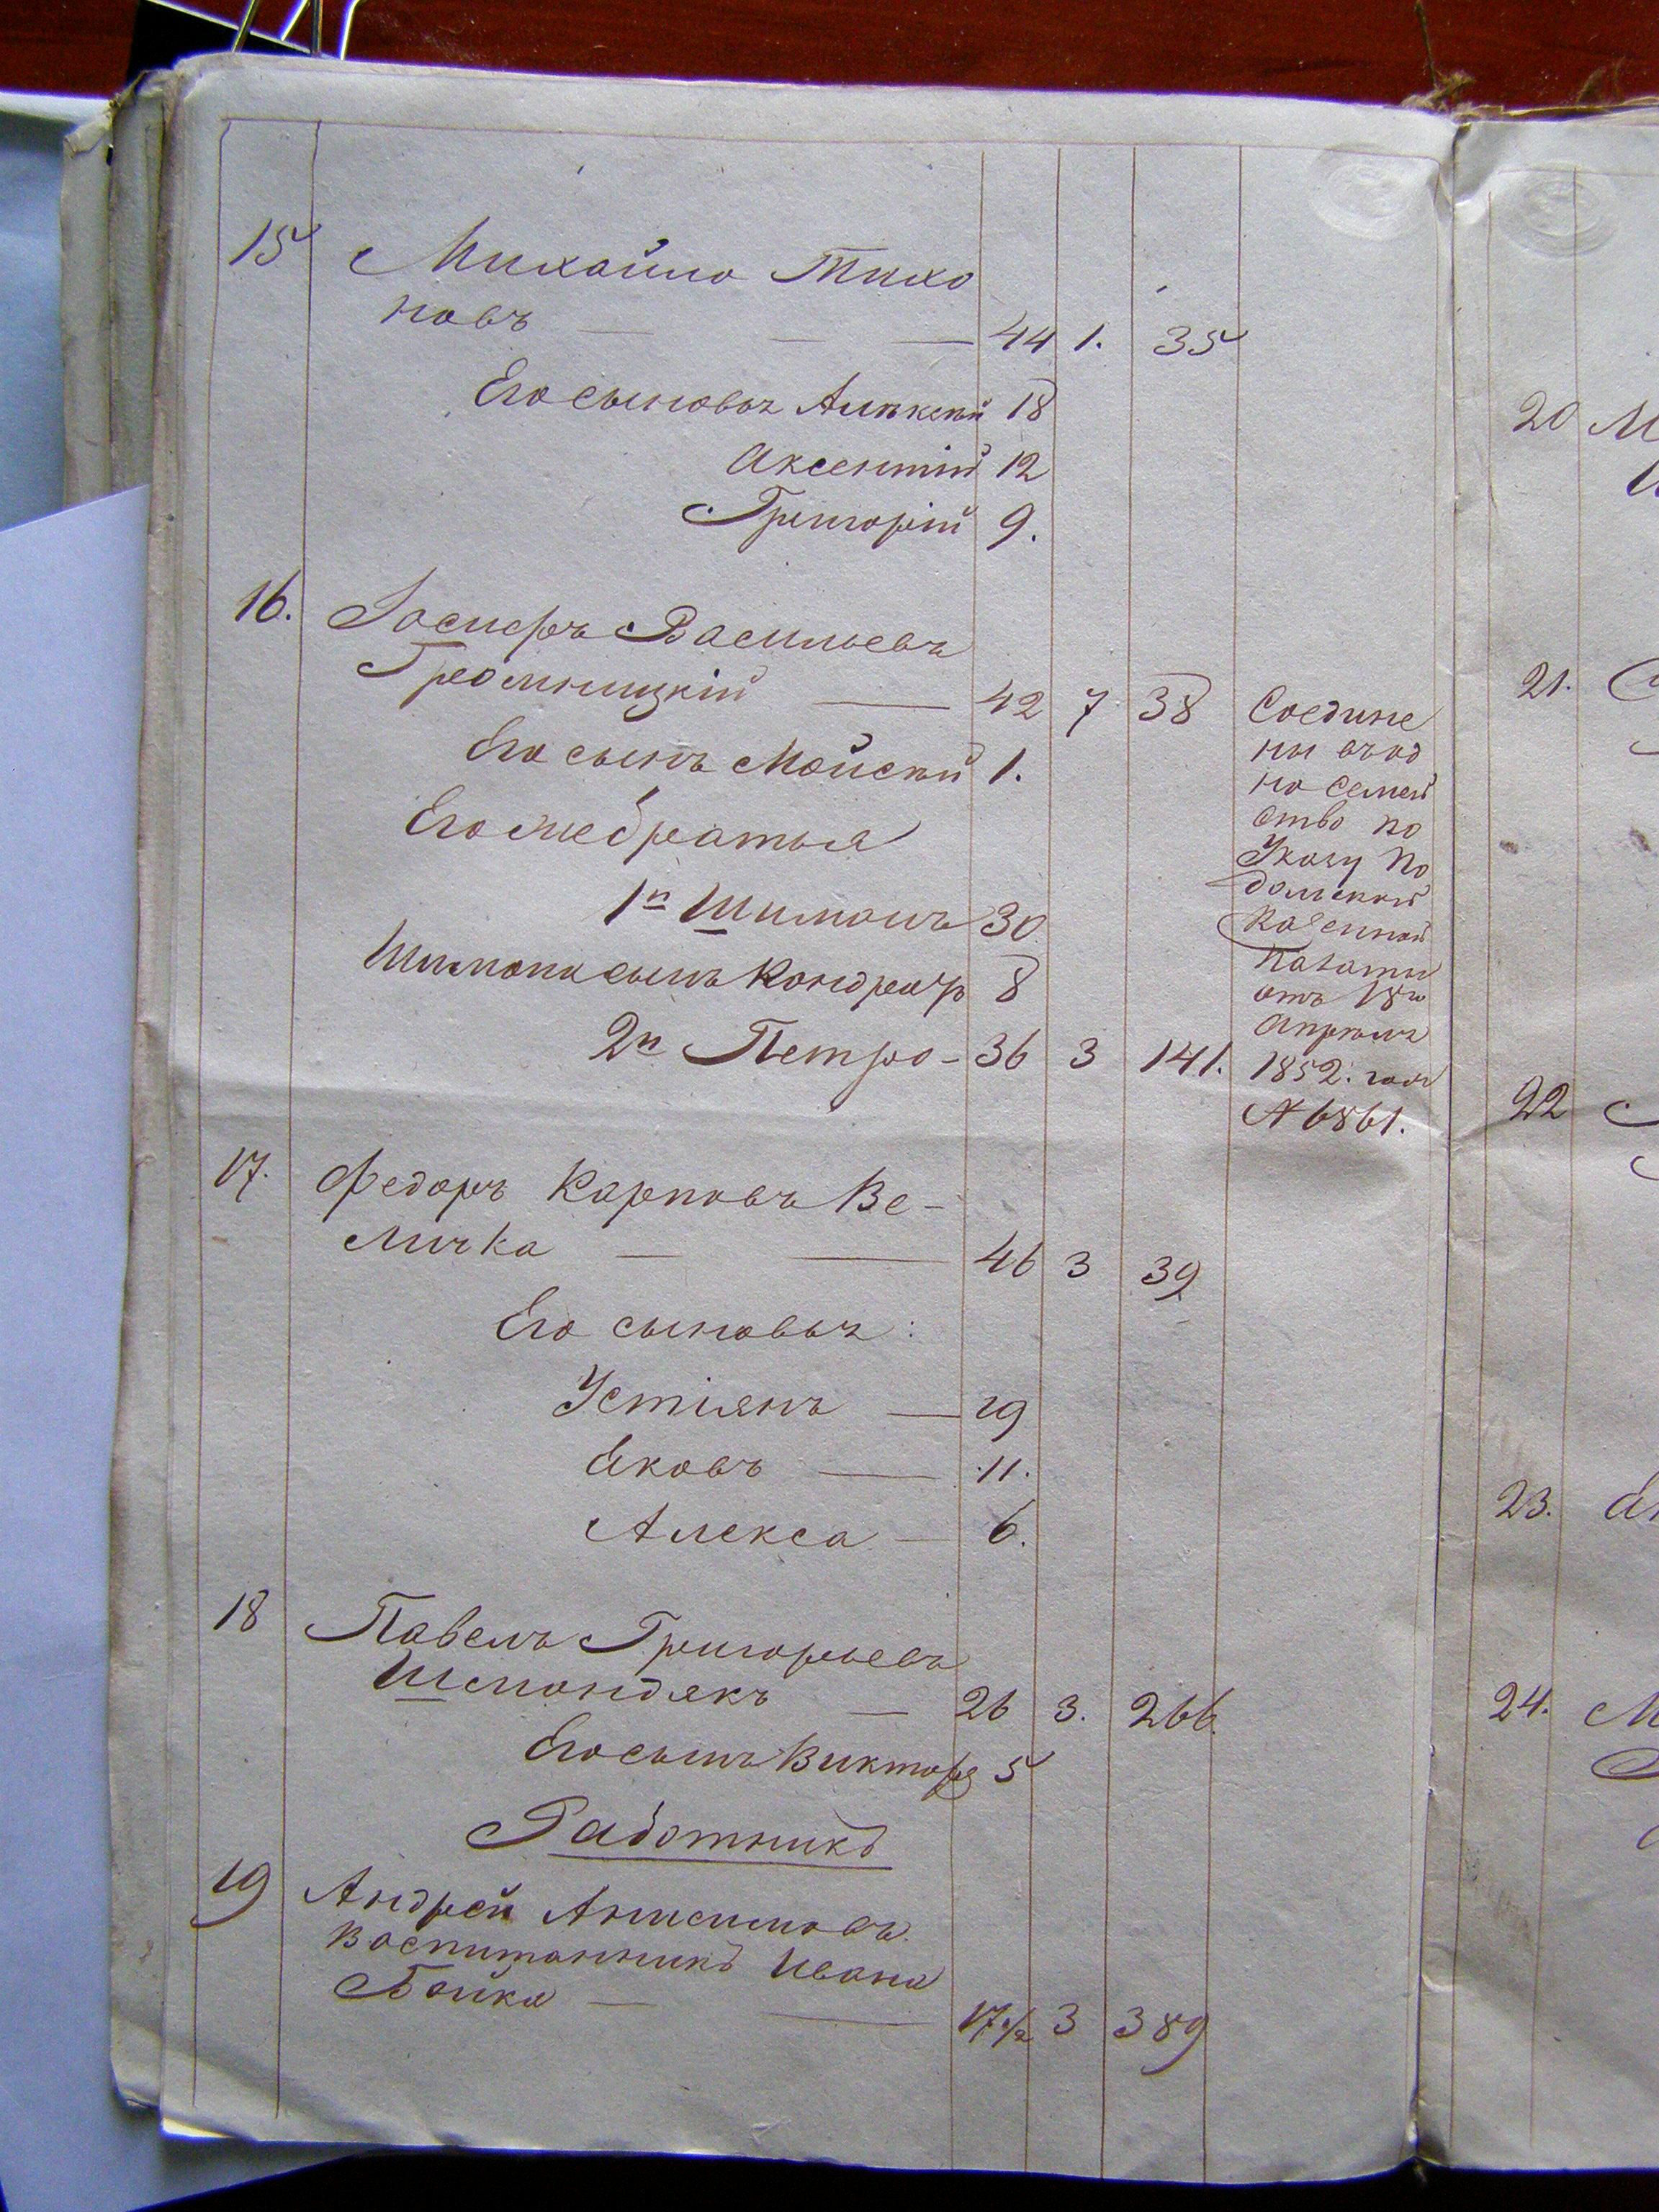 15 Михайло Тихо
новъ — — — 44 1. 35
Его сыновья Алексѣй 18
Аксентій 12
Григорій 9.
16. Іосифъ Васильевъ
Греолницкій — 42 7 38
Его сынъ Мойсей 1.
Его же братья
1й Шимонъ 30
Шимона сынъ Кондратъ 8
2й Петро - 36 3 141.
Соедине
ны въ од
но семей
ство по
Указу По
дольской
Казенной
Палаты
отъ 18го
Апрѣля
1852: года
№ 6861.
17. Федоръ Карповъ Ве-
личка — — 46 3 39
Его сыновья:
Устіянъ — 19
Яковъ — 11.
Алекса — 6.
18 Павелъ Григорьевъ
Шмондякъ — 26 3. 266.
Его сынъ Викторъ 5
Работникъ
19 Андрей Анисимовъ
Воспитанникъ Ивана
Бойка — — 17 1/2 3 389
20 М
21. С
22
23.
24. М